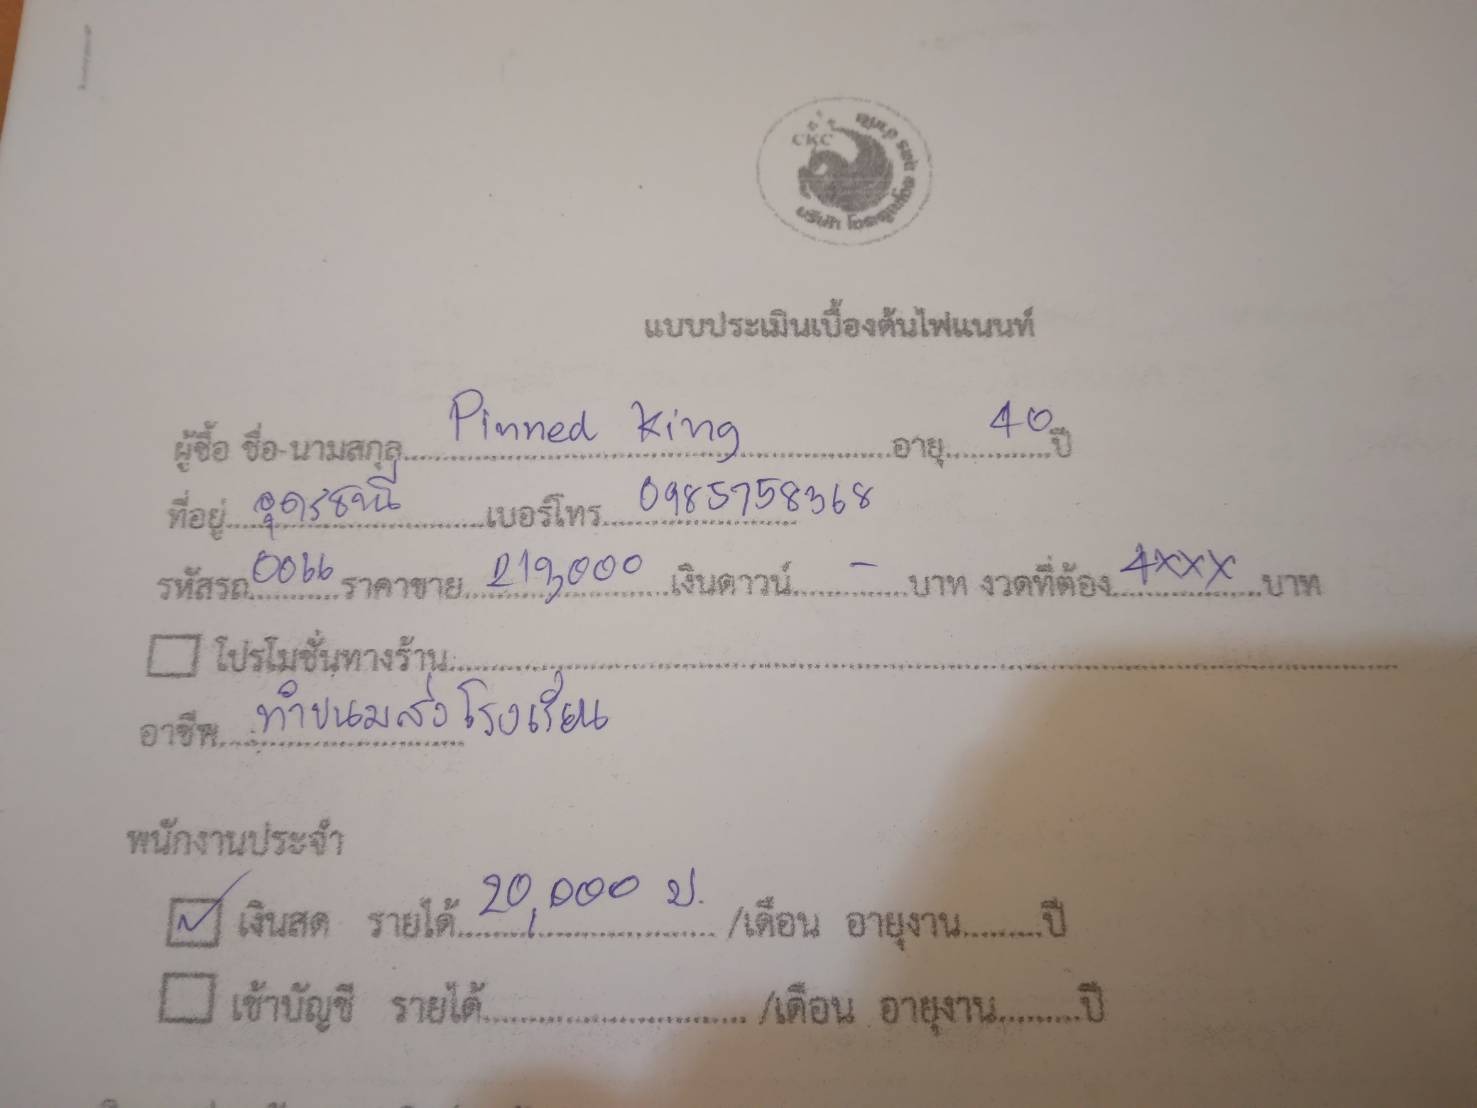 CKC
บริษัท
แบบประเมินเบื้องต้นไฟแนนท์
ผู้ซื้อ ชื่อ-นามสกุล Pinned King อายุ 40 ปี
ที่อยู่ อุดรธานี เบอร์โทร 0985758368
รหัสรถ 0066 ราคาขาย 219,000 เงินดาวน์ - บาท งวดที่ต้อง 4xxx บาท
โปรโมชั่นทางร้าน
อาชีพ ทำขนมส่งโรงเรียน
พนักงานประจำ
เงินสด รายได้ 20,000 บ. /เดือน อายุงาน ปี
เข้าบัญชี รายได้ /เดือน อายุงาน ปี